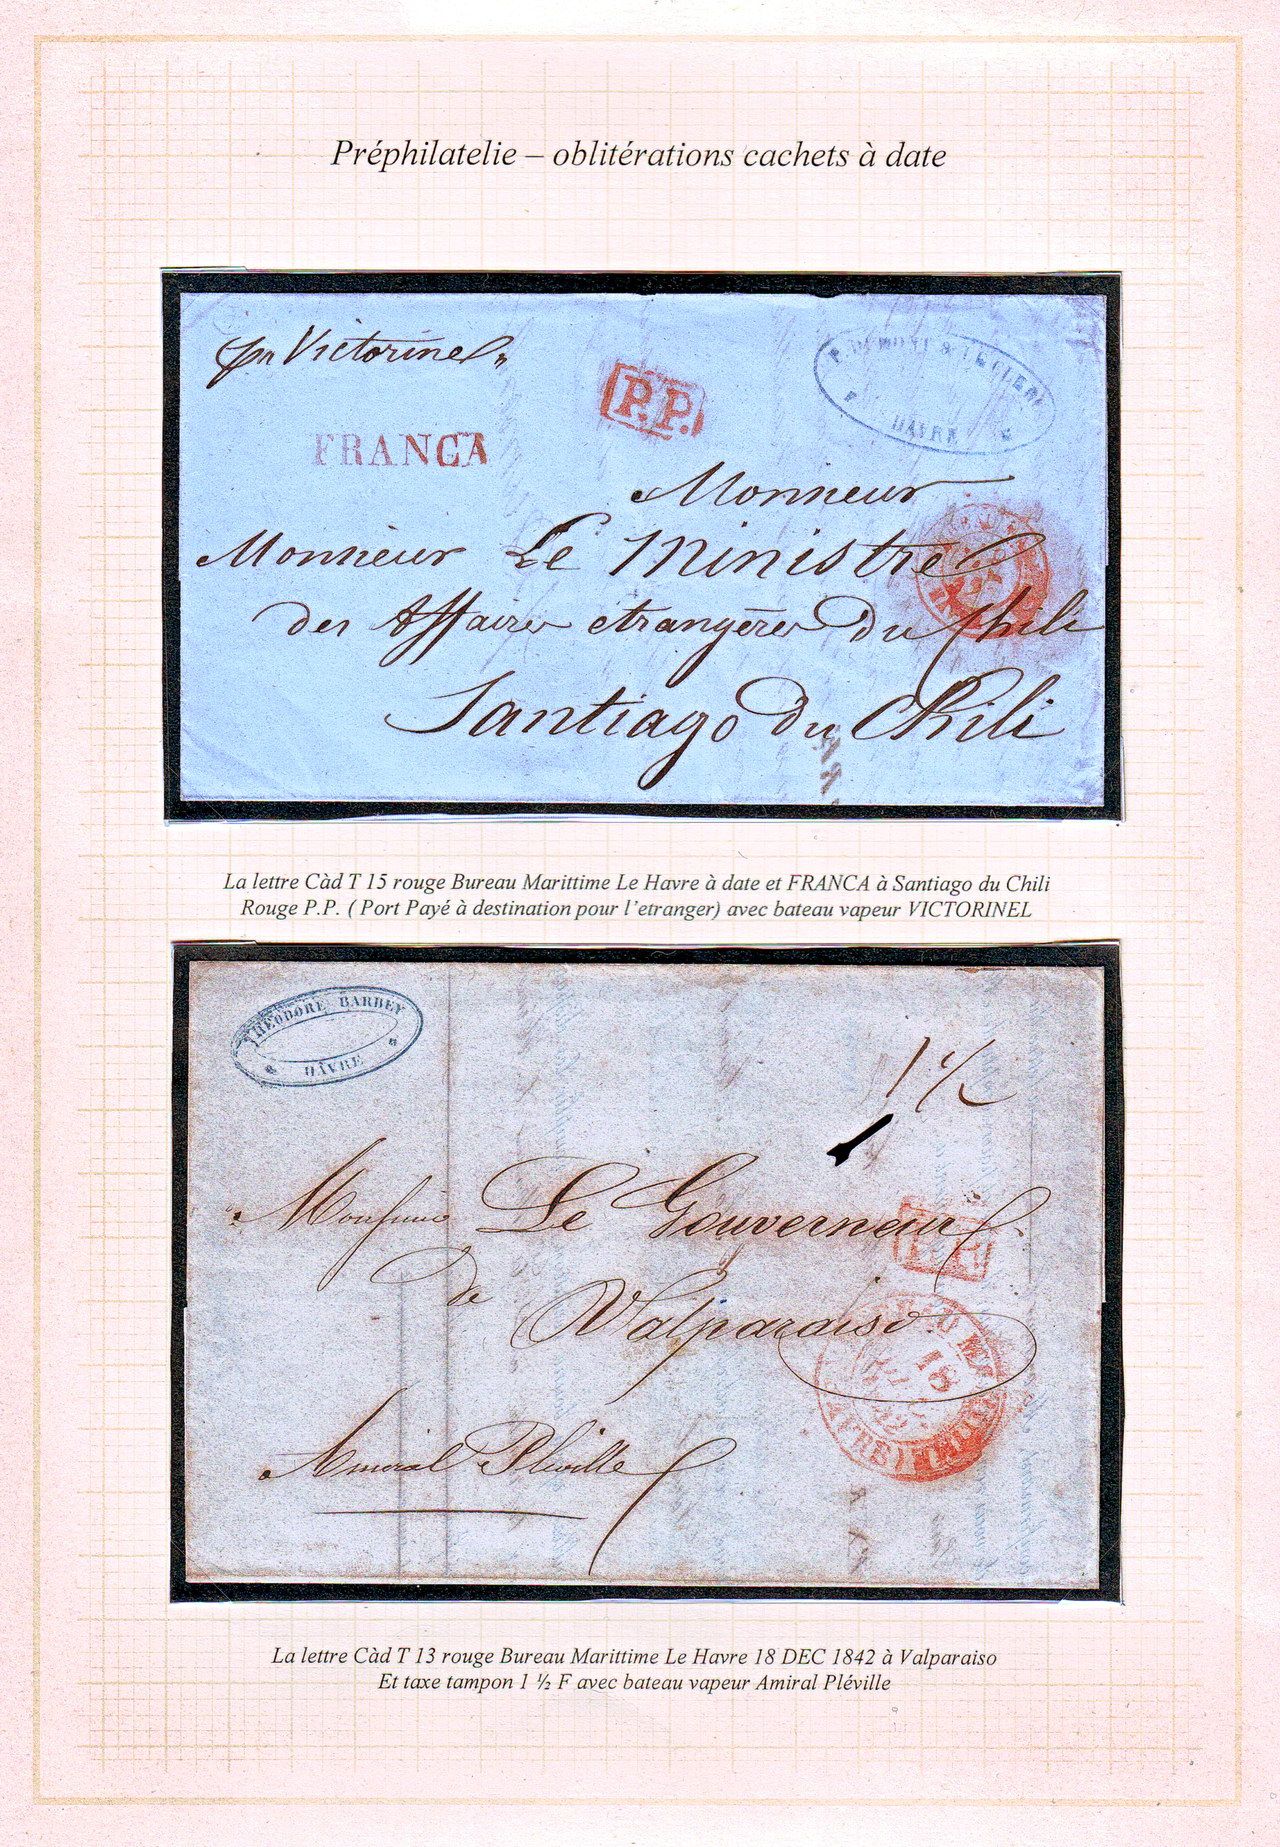 Préphilatelie – oblitérations cachets à date
pr Victorinel
P.P.
& LECLERC
HAVRE
FRANCA
Monsieur
Monsieur Le Ministre
des Affaires etrangéres du Chili
Santiago du Chili
La lettre Càd T 15 rouge Bureau Marittime Le Havre à date et FRANCA à Santiago du Chili
Rouge P.P. ( Port Payé à destination pour l'etranger) avec bateau vapeur VICTORINEL
THEODORE BARBEY
HÂVRE
1 1/2
Monsieur Le Gouverneur
P.P.
de Valparaiso
18
42
Amiral Pléville
La lettre Càd T 13 rouge Bureau Marittime Le Havre 18 DEC 1842 à Valparaiso
Et taxe tampon 1 ½ F avec bateau vapeur Amiral Pléville